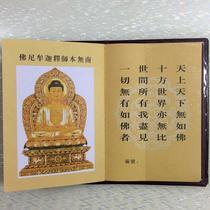 天上天下無如佛
十方世界亦無比
世間所有我盡見
一切無有如佛者
南無本師釋迦牟尼佛